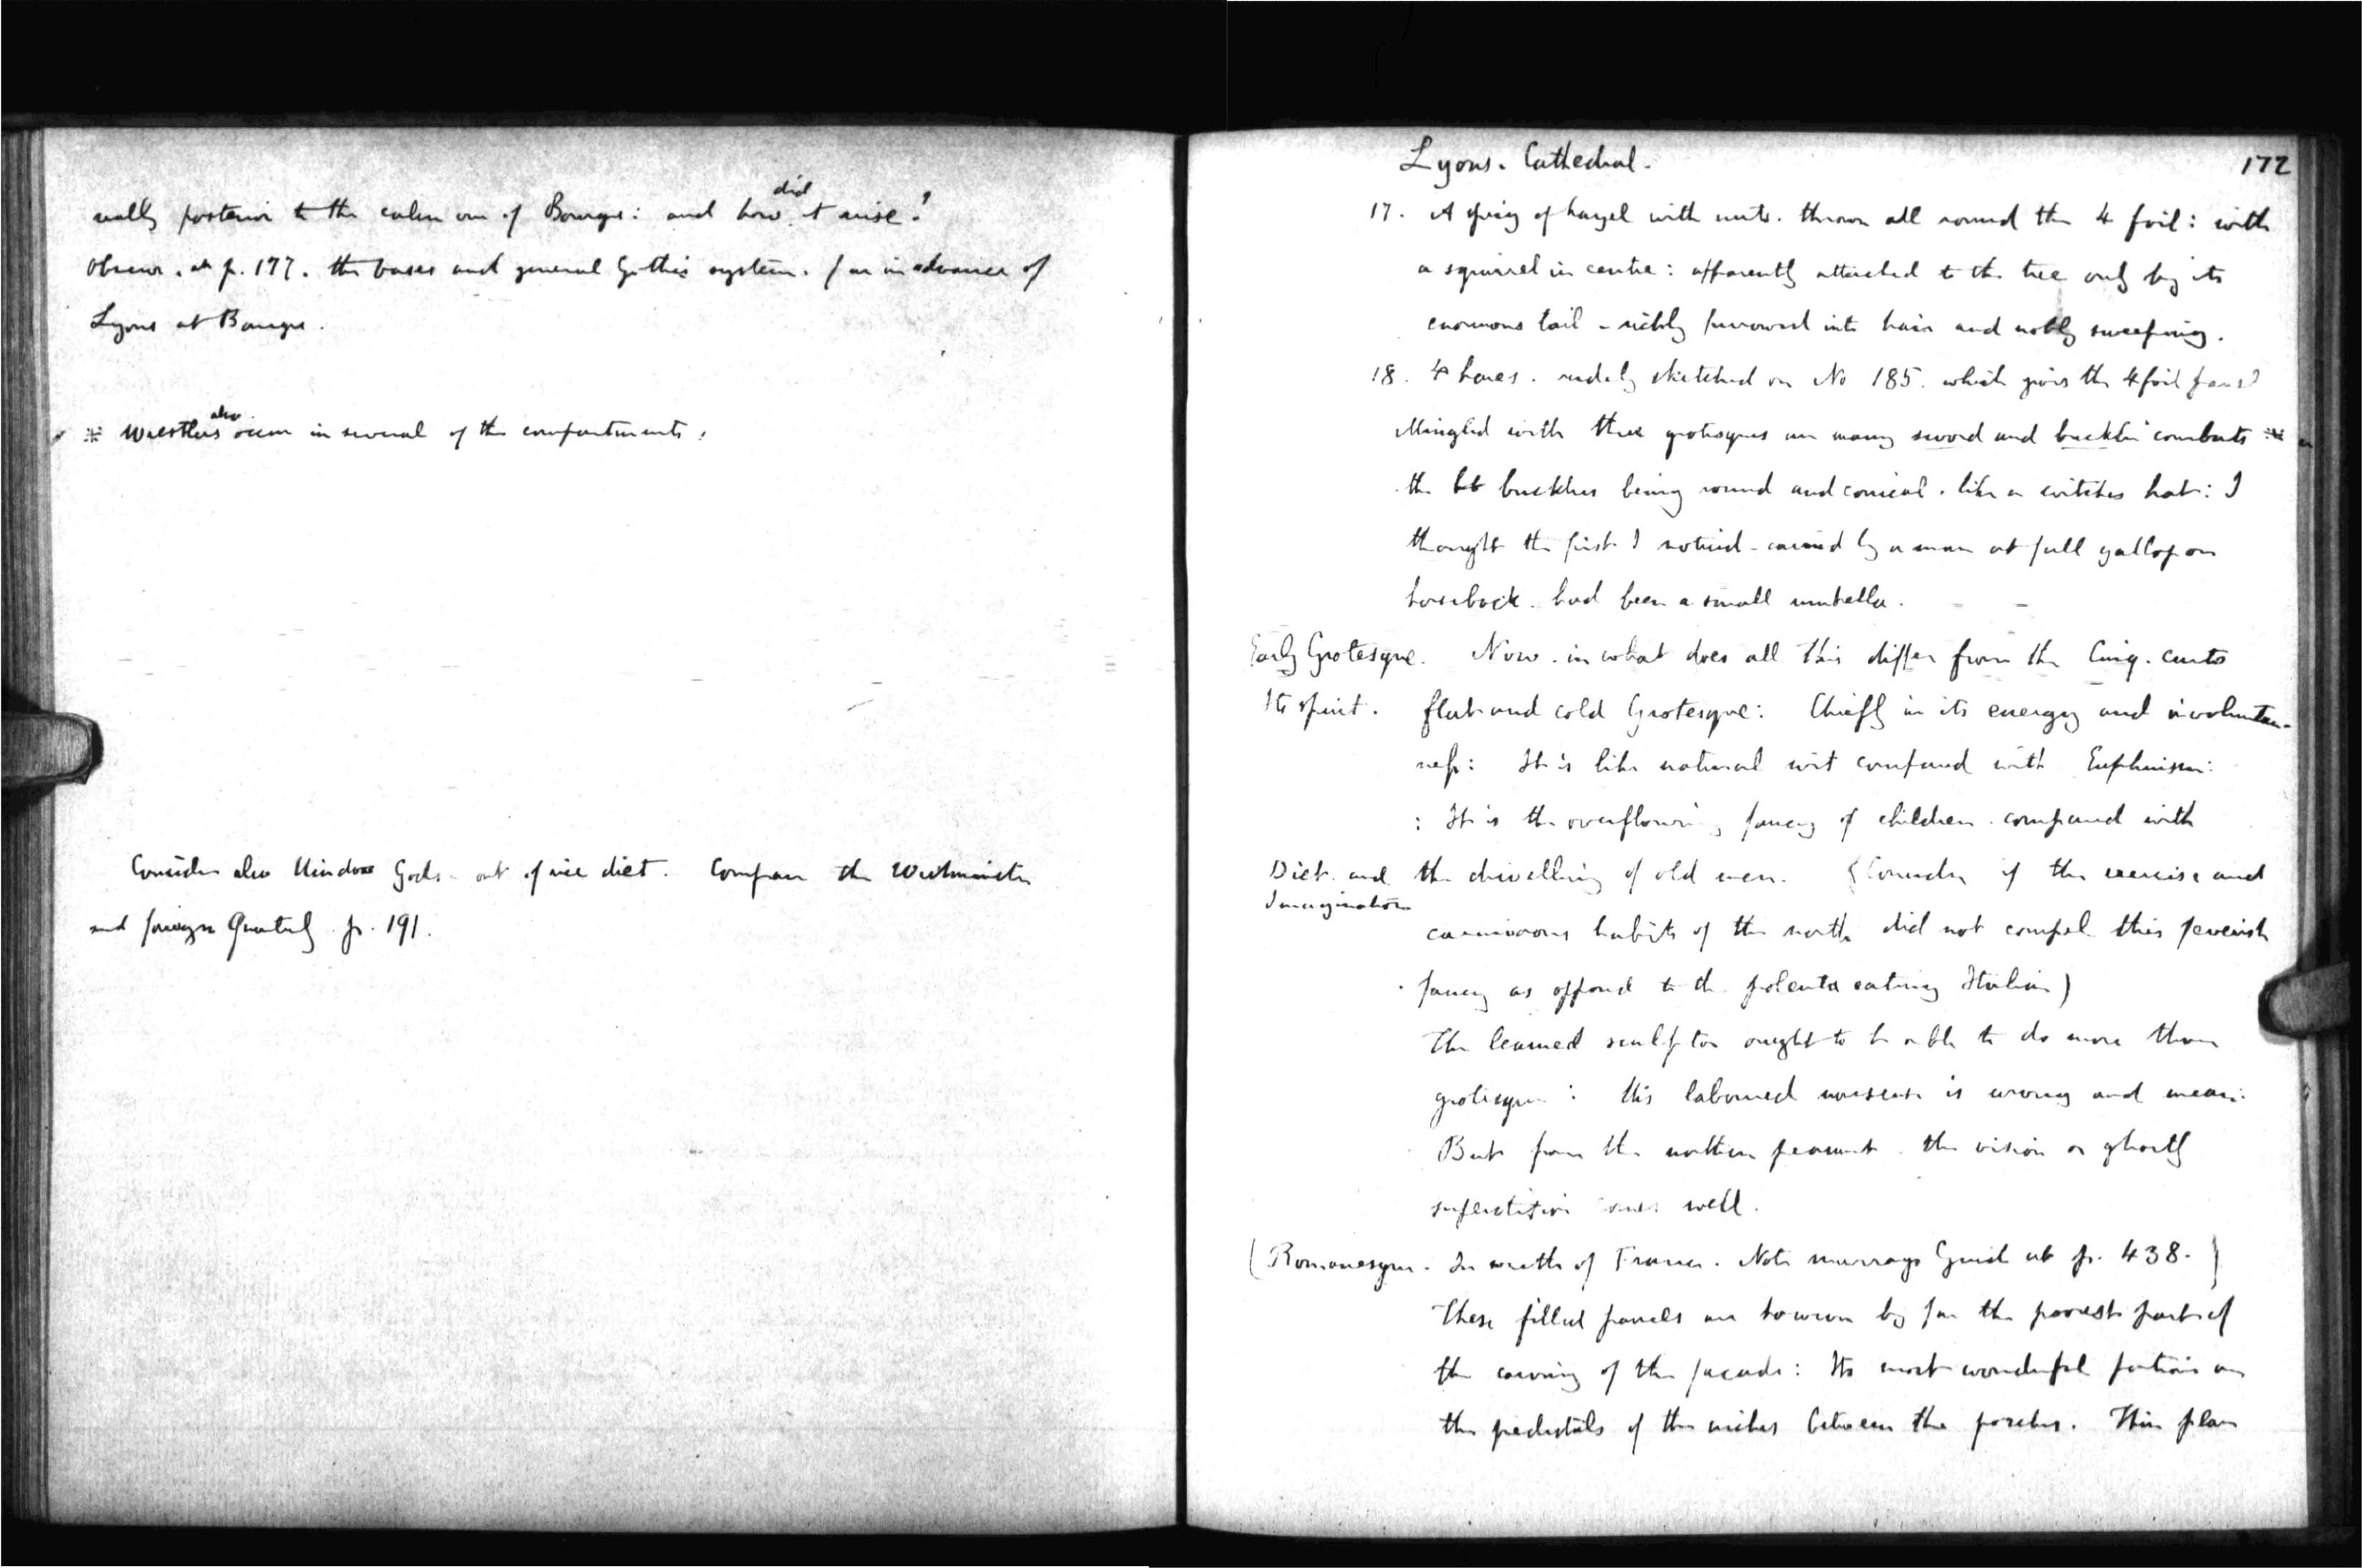 really posterior to the calm one of Bourges: and how did it rise?
Observe. at p. 177. the bases and general Gothic system. far in advance of
Lyons at Bourges.
* Wrestlers also occur in several of the compartments.
Consider also Hindoo Gods - out of rice diet. Compare the Westminster
and foreign Quarterly p. 191.
Lyons. Cathedral.
172
17. A sprig of hazel with nuts. thrown all round the 4 foil: with
a squirrel in centre: apparently attached to the tree only by its
enormous tail - richly furrowed into hair and nobly sweeping.
18. 4 hares. rudely sketched on No 185. which gives the 4 foil
Mingled with these grotesques are many sword and buckler combats *
the bb bucklers being round and conical. like a witches hat: I
thought the first I noticed - carried by a man at full gallop on
horseback. had been a small umbrella.
Early Grotesque. Now. in what does all this differ from the Cinq. cento
Its spirit. flat and cold Grotesque: Chiefly in its energy and involuntari-
ness: It is like natural wit compared with Euphuism:
: It is the overflowing fancy of children. compared with
Diet. and the drivelling of old men. (Consider if the exercise and
Imagination
carnivorous habits of the north did not compel this feverish
fancy as opposed to the polenta eating Italian)
The learned sculptor ought to be able to do more than
grotesque: His laboured nonsense is wrong and mean:
But from the northern peasant. the vision or ghostly
superstition comes well.
(Romanesque. In south of France. Note Murrays Guide at p. 438.)
These filled panels are however by far the poorest part of
the carving of the facade: Its most wonderful portions are
the pedestals of the niches between the porches. Their plan